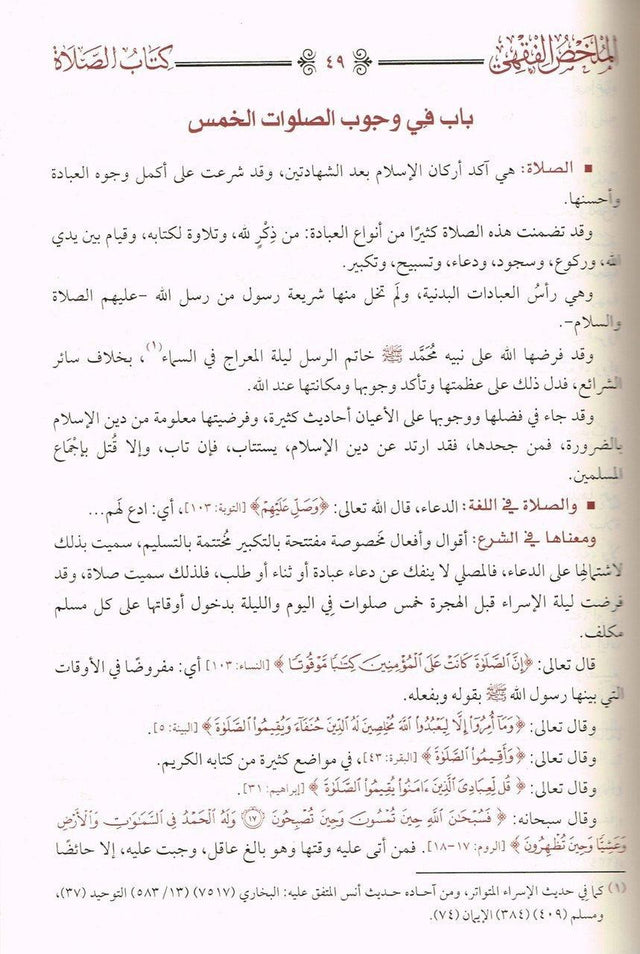 الملخص الفقهي ٤٩ كتاب الصلاة
باب في وجوب الصلوات الخمس
■ الصلاة: هي آكد أركان الإسلام بعد الشهادتين، وقد شرعت على أكمل وجوه العبادة
وأحسنها.
وقد تضمنت هذه الصلاة كثيرًا من أنواع العبادة: من ذِكْرٍ لله، وتلاوة لكتابه، وقيام بين يدي
الله، وركوع، وسجود، ودعاء، وتسبيح، وتكبير.
وهي رأسُ العبادات البدنية، ولَم تخل منها شريعة رسول من رسل الله -عليهم الصلاة
والسلام-.
وقد فرضها الله على نبيه مُحَمَّد ﷺ خاتم الرسل ليلة المعراج في السماء(١)، بخلاف سائر
الشرائع، فدل ذلك على عظمتها وتأكد وجوبها ومكانتها عند الله.
وقد جاء في فضلها ووجوبها على الأعيان أحاديث كثيرة، وفرضيتها معلومة من دين الإسلام
بالضرورة، فمن جحدها، فقد ارتد عن دين الإسلام، يستتاب، فإن تاب، وإلا قُتل بإجْمَاع
المسلمين.
■ والصلاة في اللغة: الدعاء، قال الله تعالى: ﴿وَصَلِّ عَلَيْهِمْ﴾ [التوبة: ١٠٣]، أي: ادع لَهم...
ومعناها في الشرع: أقوال وأفعال مَخصوصة مفتتحة بالتكبير مُختتمة بالتسليم، سميت بذلك
لاشتمالِها على الدعاء، فالمصلي لا ينفك عن دعاء عبادة أو ثناء أو طلب، فلذلك سميت صلاة، وقد
فرضت ليلة الإسراء قبل الهجرة خمس صلوات فِي اليوم والليلة بدخول أوقاتها على كل مسلم
مكلف.
قال تعالى: ﴿إِنَّ ٱلصَّلَوٰةَ كَانَتْ عَلَى ٱلْمُؤْمِنِينَ كِتَٰبًا مَّوْقُوتًا﴾ [النساء: ١٠٣] أي: مفروضًا في الأوقات
التي بينها رسول الله ﷺ بقوله وبفعله.
وقال تعالى: ﴿وَمَآ أُمِرُوٓا۟ إِلَّا لِيَعْبُدُوا۟ ٱللَّهَ مُخْلِصِينَ لَهُ ٱلدِّينَ حُنَفَآءَ وَيُقِيمُوا۟ ٱلصَّلَوٰةَ﴾ [البينة: ٥].
وقال تعالى: ﴿وَأَقِيمُوا۟ ٱلصَّلَوٰةَ﴾ [البقرة: ٤٣]، في مواضع كثيرة من كتابه الكريم.
وقال تعالى: ﴿قُل لِّعِبَادِىَ ٱلَّذِينَ ءَامَنُوا۟ يُقِيمُوا۟ ٱلصَّلَوٰةَ﴾ [إبراهيم: ٣١].
وقال سبحانه: ﴿فَسُبْحَٰنَ ٱللَّهِ حِينَ تُمْسُونَ وَحِينَ تُصْبِحُونَ ۝١٧ وَلَهُ ٱلْحَمْدُ فِى ٱلسَّمَٰوَٰتِ وَٱلْأَرْضِ
وَعَشِيًّا وَحِينَ تُظْهِرُونَ﴾ [الروم: ١٧-١٨]. فمن أتى عليه وقتها وهو بالغ عاقل، وجبت عليه، إلا حائضًا
(١) كما في حديث الإسراء المتواتر، ومن آحاده حديث أنس المتفق عليه: البخاري (٧٥١٧) (١٣/ ٥٨٣) التوحيد (٣٧)،
ومسلم (٤٠٩) (٣٨٤) الإيمان (٧٤).